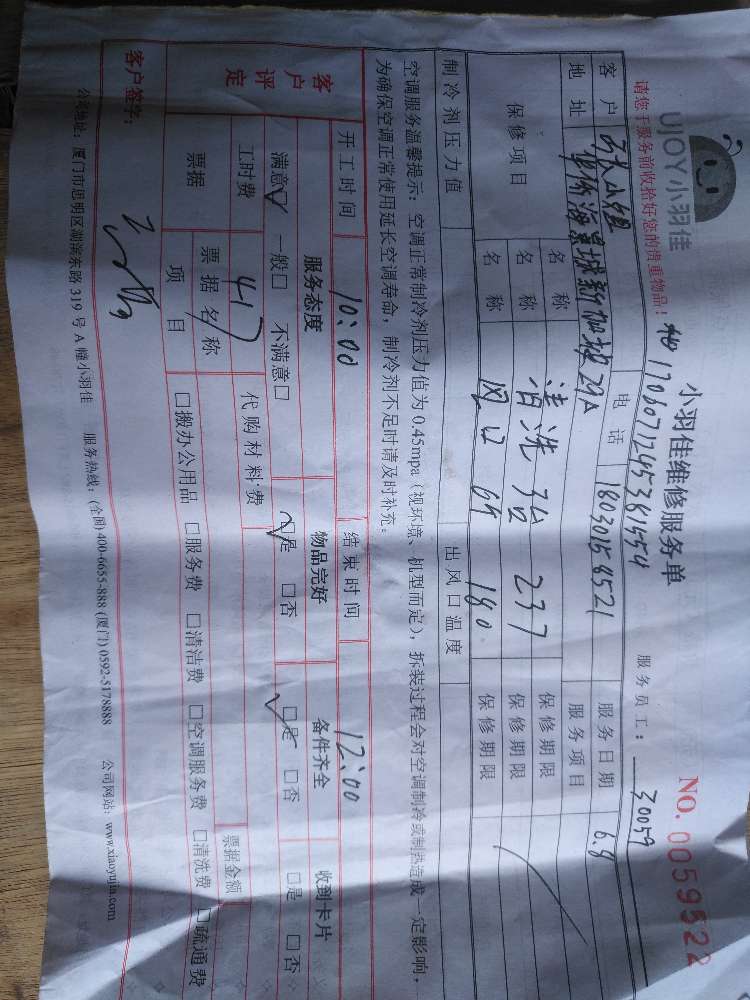 UJOY小羽佳
小羽佳维修服务单
NO. 0059522
请您于服务前收拾好您的贵重物品!
170607124538 1554
服务员工: 30059
客户 张小姐 电话 18030158521 服务日期 6.8
地址 海景城新加坡29A 服务项目
保修项目 名称 保修期限
名称 清洗 3台 237 保修期限
名称 风口 6个 180 保修期限
制冷剂压力值 出风口温度
空调服务温馨提示: 空调正常制冷剂压力值为0.45mpa(视环境、机型而定), 拆装过程会对空调制冷或制热造成一定影响,
为确保空调正常使用延长空调寿命, 制冷剂不足时请及时补充。
开工时间 10:00 结束时间 12:00
客户评定 服务态度 物品完好 备件齐全 收到卡片
满意☑ 一般□ 不满意□ ☑是 □否 ☑是 □否 □是 □否
工时费 417 代购材料费 票据金额
票据 票据名称
项目 □搬办公用品 □服务费 □清洁费 □空调服务费 □清洗费 □疏通费
客户签字:
公司地址: 厦门市思明区湖滨东路319号A幢小羽佳 服务热线: (全国)400-6655-888 (厦门)0592-5178888 公司网站: www.xiaoyujia.com